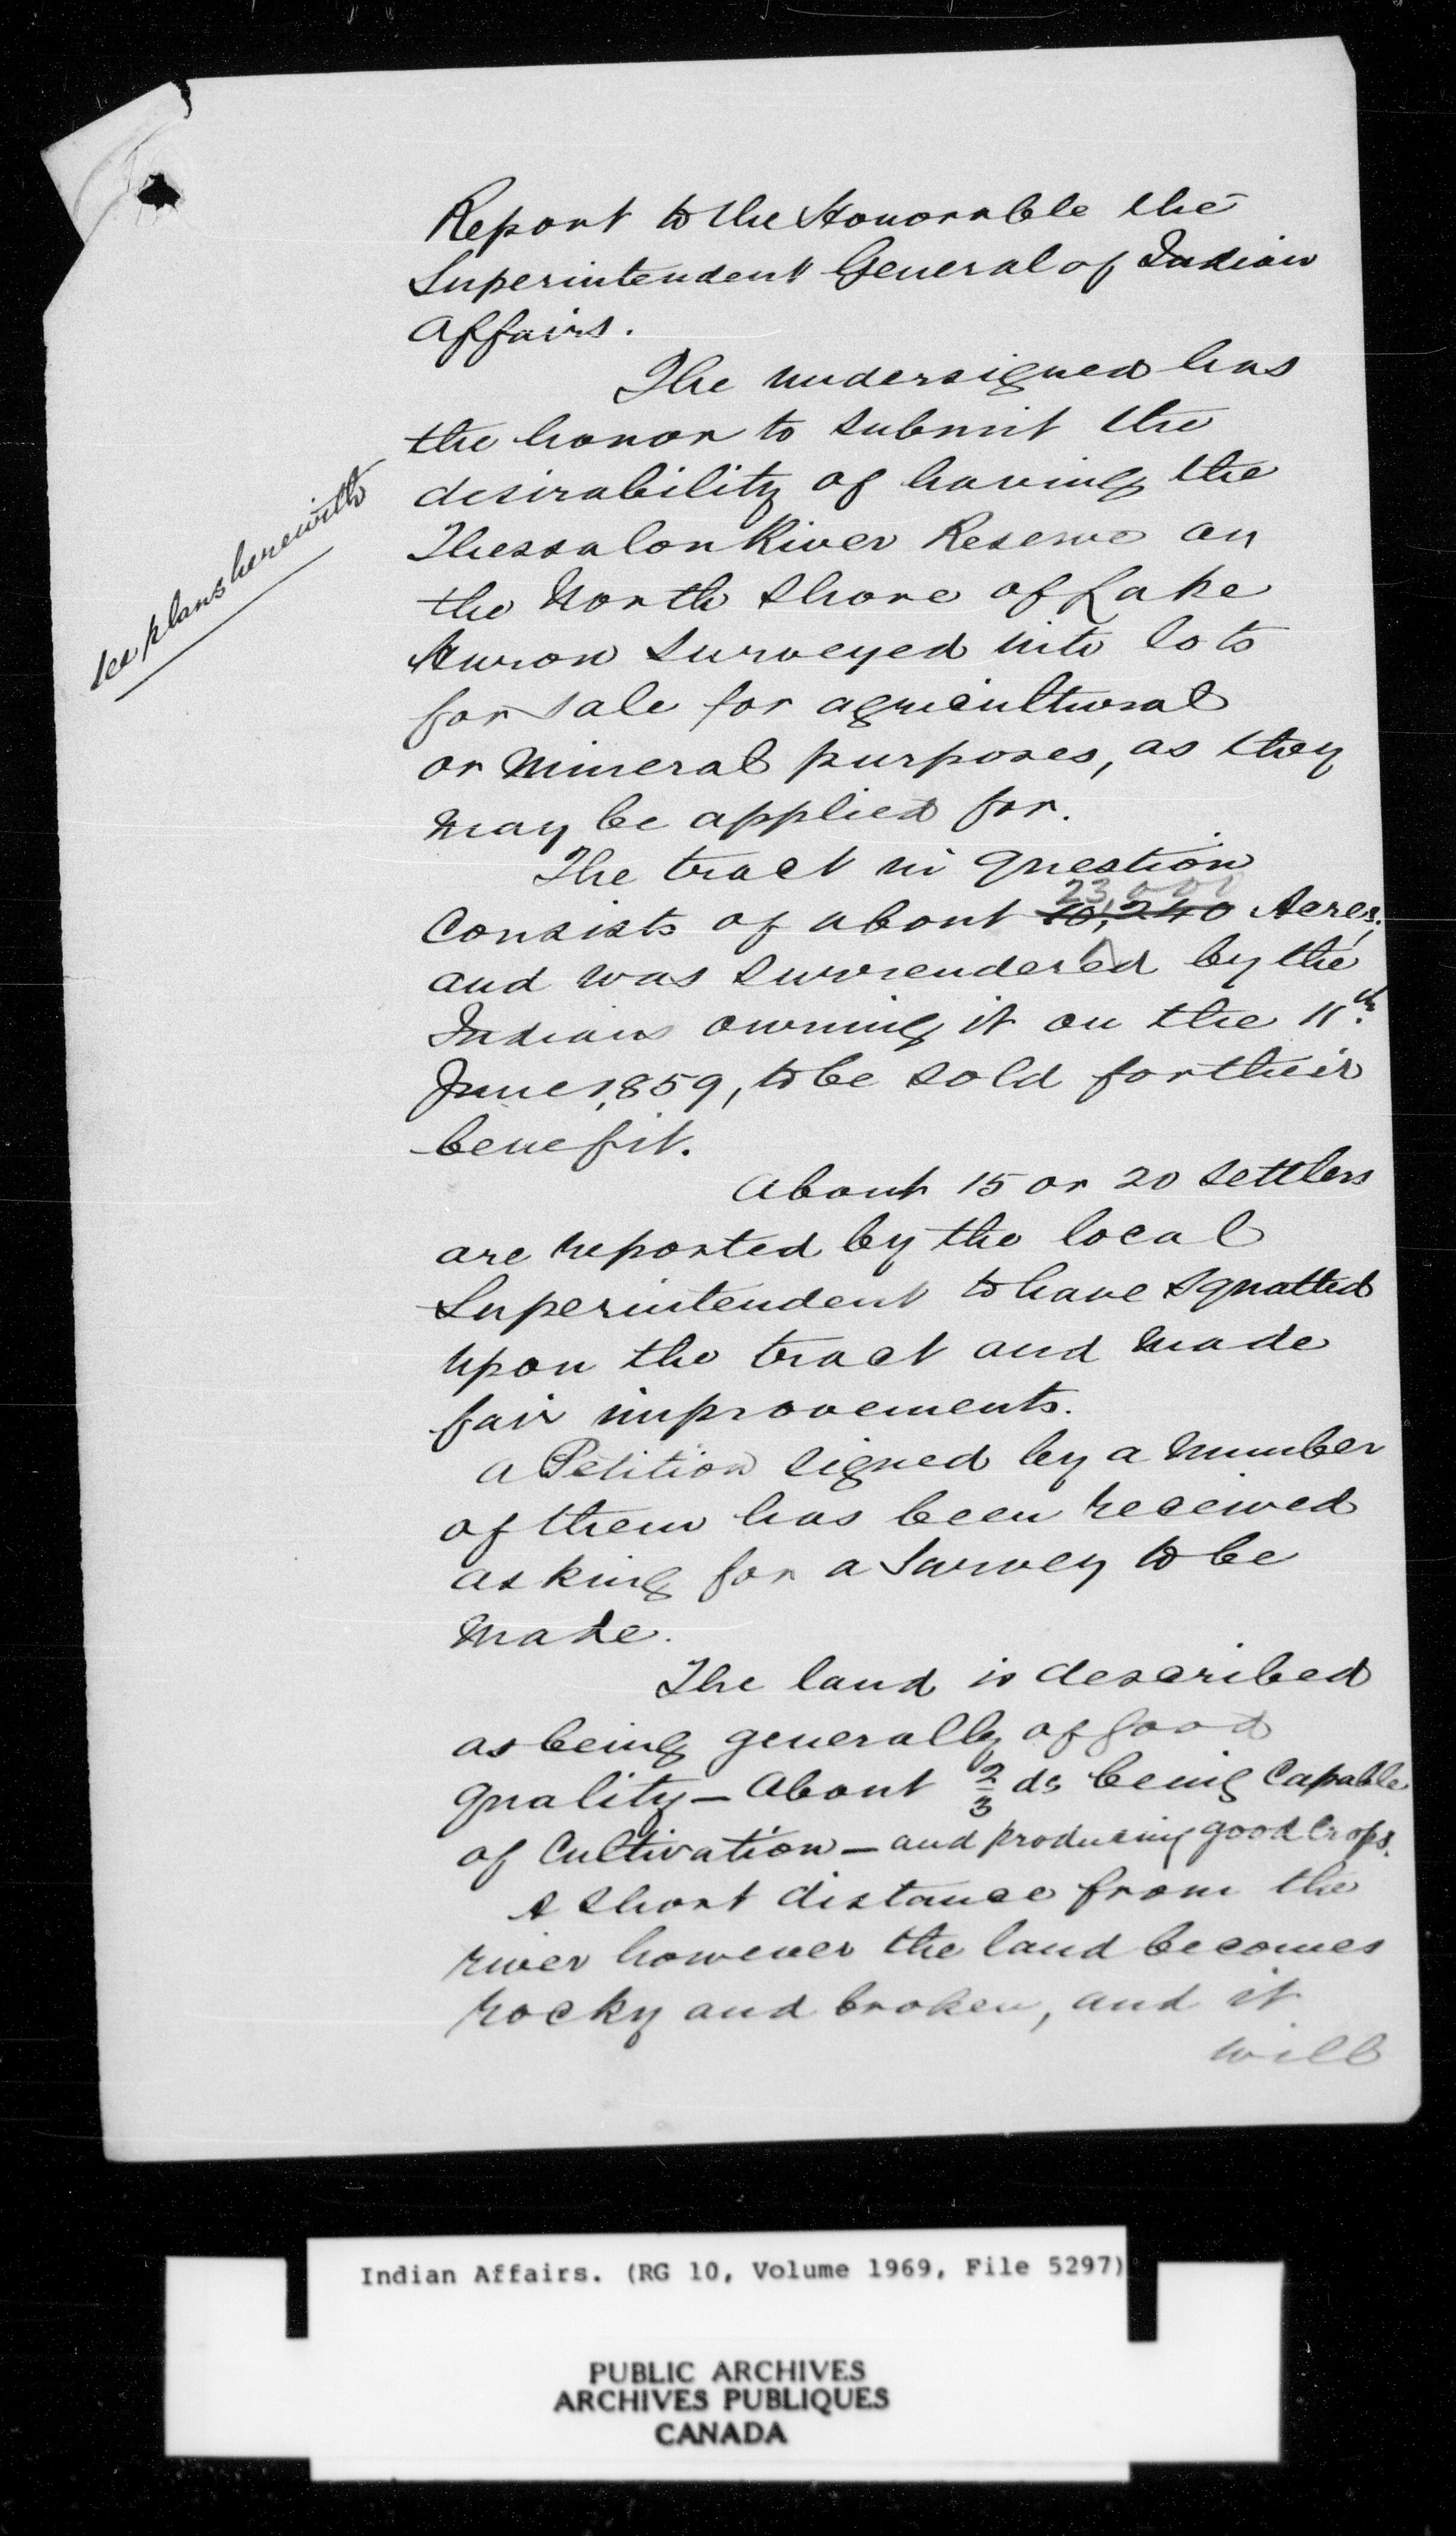 Report to the Honorable the
Superintendent General of Indian
Affairs.
The undersigned has
the honor to submit the
desirability of having the
Thessalon River Reserve on
the North Shore of Lake
Huron surveyed into lots
for sale for agricultural
or mineral purposes, as they
may be applied for.
See plans herewith
The tract in question
23,000
consists of about 10,240 Acres,
and was surrendered by the
Indians owning it on the 11th
June 1859, to be sold for their
benefit.
About 15 or 20 settlers
are reported by the local
Superintendent to have squatted
upon the tract and made
fair improvements.
A Petition signed by a number
of them has been received
asking for a survey to be
made.
The land is described
as being generally of good
quality — About 2/3 ds being capable
of cultivation — and producing good crops.
A short distance from the
river however the land becomes
rocky and broken, and it
will
Indian Affairs. (RG 10, Volume 1969, File 5297)
PUBLIC ARCHIVES
ARCHIVES PUBLIQUES
CANADA